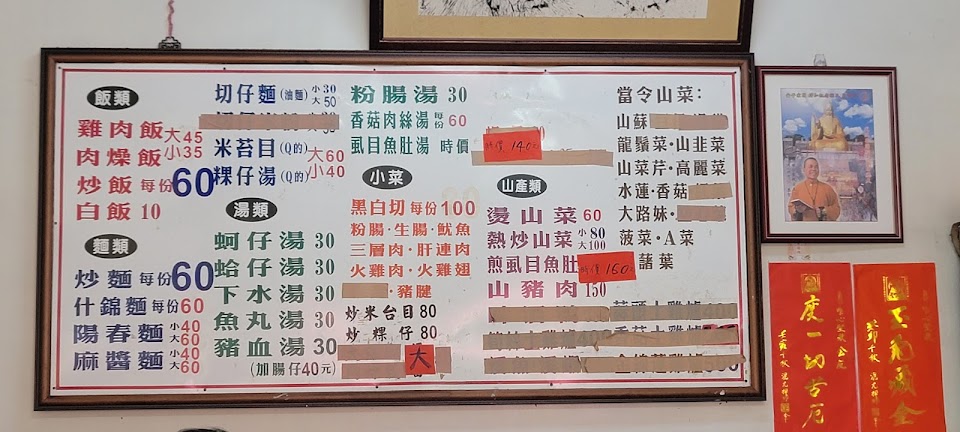 飯類
雞肉飯 大45
肉燥飯 小35
炒飯 每份60
白飯 10
麵類
炒麵 每份60
什錦麵 每份60
陽春麵 小40 大60
麻醬麵 小40 大60
切仔麵(油麵) 小30 大50
米苔目(Q的) 大60
粿仔湯(Q的) 小40
湯類
蚵仔湯 30
蛤仔湯 30
下水湯 30
魚丸湯 30
豬血湯 30
(加腸仔40元)
粉腸湯 30
香菇肉絲湯 每份 60
虱目魚肚湯 時價
時價 140
小菜
黑白切 每份100
粉腸·生腸·魷魚
三層肉·肝連肉
火雞肉·火雞翅
·豬腱
炒米台目80
炒粿仔80
大
山產類
燙山菜 60
熱炒山菜 小80 大100
煎虱目魚肚 時價 160
山豬肉 150
當令山菜:
山蘇
龍鬚菜·山韭菜
山菜芹·高麗菜
水蓮·香菇
大路妹·
菠菜·A菜
藷葉
度一切苦厄